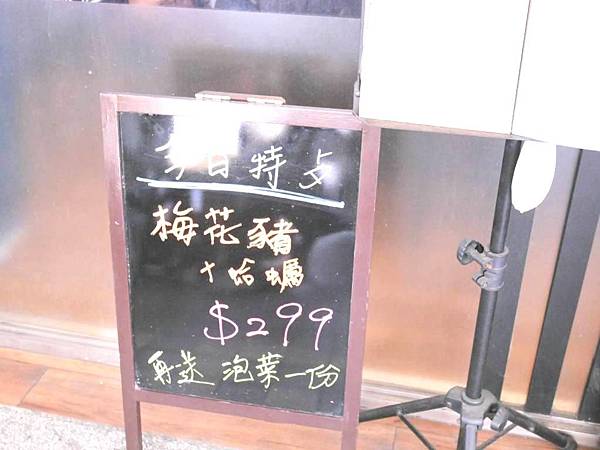 今日特点
梅花豬
+蛤蠣
$299
再送泡菜一份